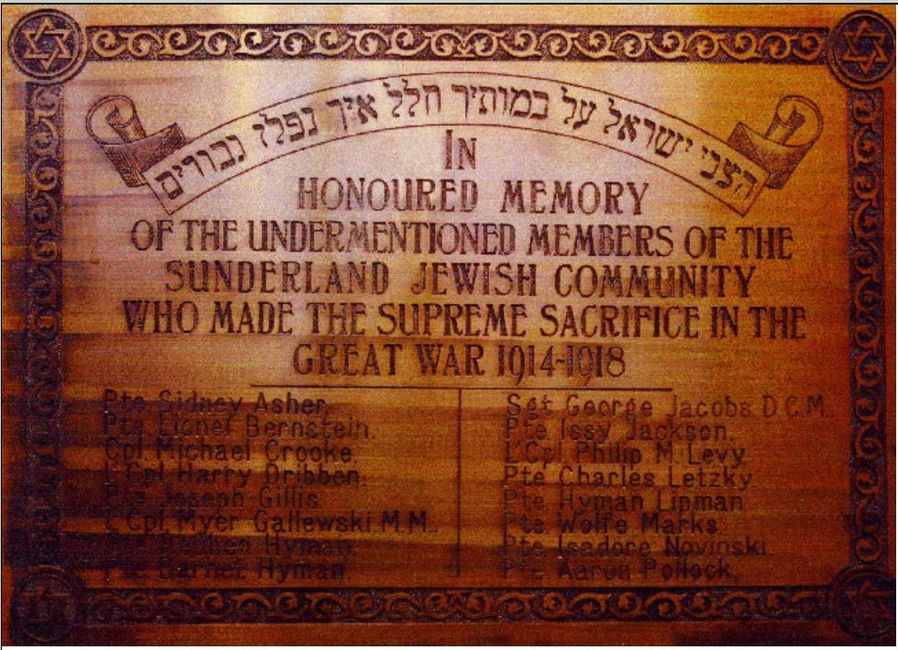 הצבי ישראל על במותיך חלל איך נפלו גבורים
IN
HONOURED MEMORY
OF THE UNDERMENTIONED MEMBERS OF THE
SUNDERLAND JEWISH COMMUNITY
WHO MADE THE SUPREME SACRIFICE IN THE
GREAT WAR 1914-1918
Pte. Sidney Asher.
Pte. Lionel Bernstein.
Cpl. Michael Crooke.
L'Cpl. Harry Dribben.
Pte. Joseph Gillis.
L'Cpl. Myer Gallewski M.M.
Reuben Hyman.
Pte. Barnet Hyman.
Sgt George Jacobs D.C.M.
Pte Issy Jackson.
L'Cpl. Philip M. Levy
Pte Charles Letzky.
Pte Hyman Lipman
Pte Wolfe Marks
Pte Isadore Novinski.
Pte Aaron Pollock.